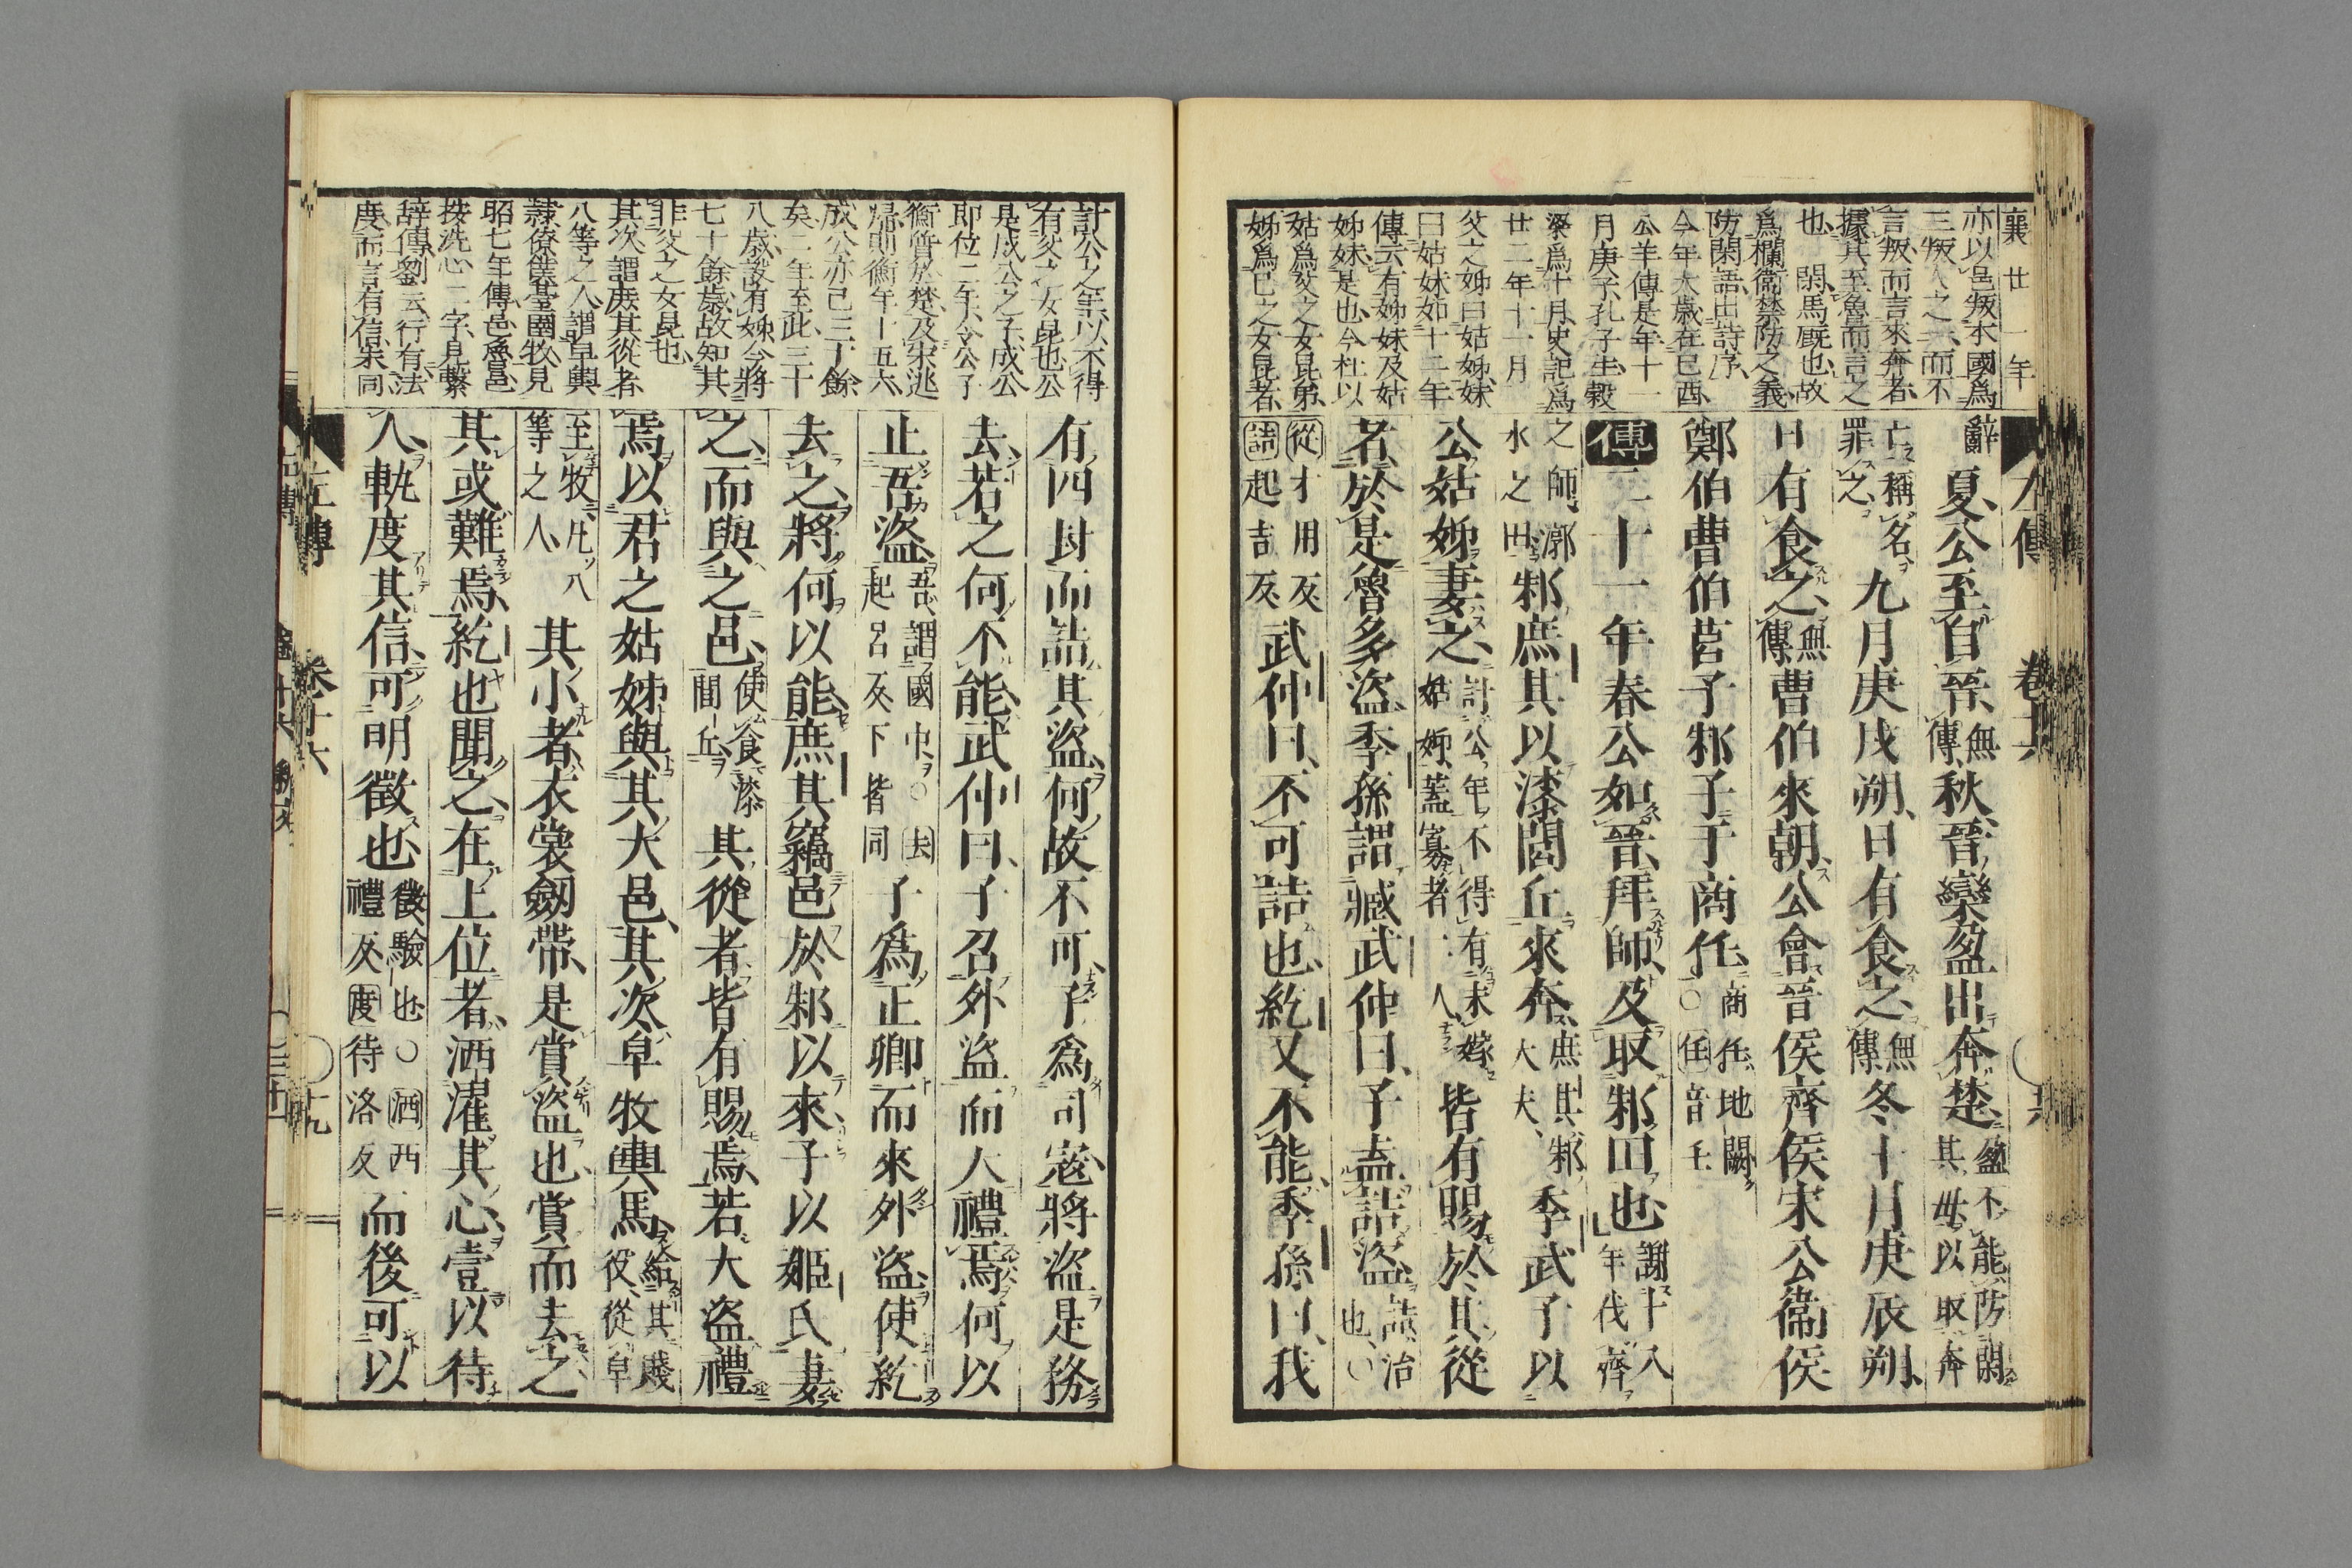 襄廿一年
亦以邑叛本國爲
三叛人之一而不
言叛而言來奔者
據其至魯而言之
也 閑馬厩也故
爲欄衞禁防之義
防閑語出詩序
今年大歳在巳酉
公羊傳是年十一
月庚子孔子生穀
梁爲十月史記爲
廿二年十一月
父之姊曰姑姊妹
曰姑妹如十二年
傳云有姊妹及姑
姊妹是也今杜以
姑爲父之女昆弟
姊爲已之女昆者
左傳 卷十六
辭夏公至自晉無傳秋晉欒盈出奔楚盈不能防閑其母以取奔
亡稱名罪之九月庚戌朔日有食之無傳冬十月庚辰朔
日有食之無傳曹伯來朝公會晉侯齊侯宋公衞侯
鄭伯曹伯莒子邾子于商任商任地闕○任音壬
傳二十一年春公如晉拜師及取邾田也謝十八年伐齊
之師漷水之田邾庶其以漆閭丘來奔庶其邾大夫季武子以
公姑姊妻之計公年不得有未嫁姑姊蓋寡者二人皆有賜於其從
者於是魯多盜季孫謂臧武仲曰子盍詰盜詰治也○
從才用反詰起吉反武仲曰不可詰也紇又不能季孫曰我
計公之年以不得
有父之女昆也公
是成公之子成公
即位二年令公子
衡質於楚及宋逃
歸則衡年十五六
成公亦已三丁餘
矣二年至此三十
八歳設有姊今將
七十餘歳故知其
非父之女昆也
其次謂庻其從者
八等之人謂皁輿
隷僚僕臺圉牧見
昭七年傳邑魯邑
按洗心二字見繫
辭傳劉云行有法
度而言有信杲同
有四封而詰其盜何故不可子爲司寇將盜是務
去若之何不能武仲曰子召外盜而大禮焉何以
止吾盜吾謂國中○去起呂反下皆同子爲正卿而來外盜使紇
去之將何以能庶其竊邑於邾以來子以姬氏妻
之而與之邑使食漆閭丘其從者皆有賜焉若大盜禮
焉以君之姑姊與其大邑其次皁牧輿馬給其賤役從皁
至牧凡八等之人其小者衣裳劒帶是賞盜也賞而去之
其或難焉紇也聞之在上位者洒濯其心壹以待
人軌度其信可明徵也徵驗也○洒西禮反度待洛反而後可以
左傳 卷十六 十九